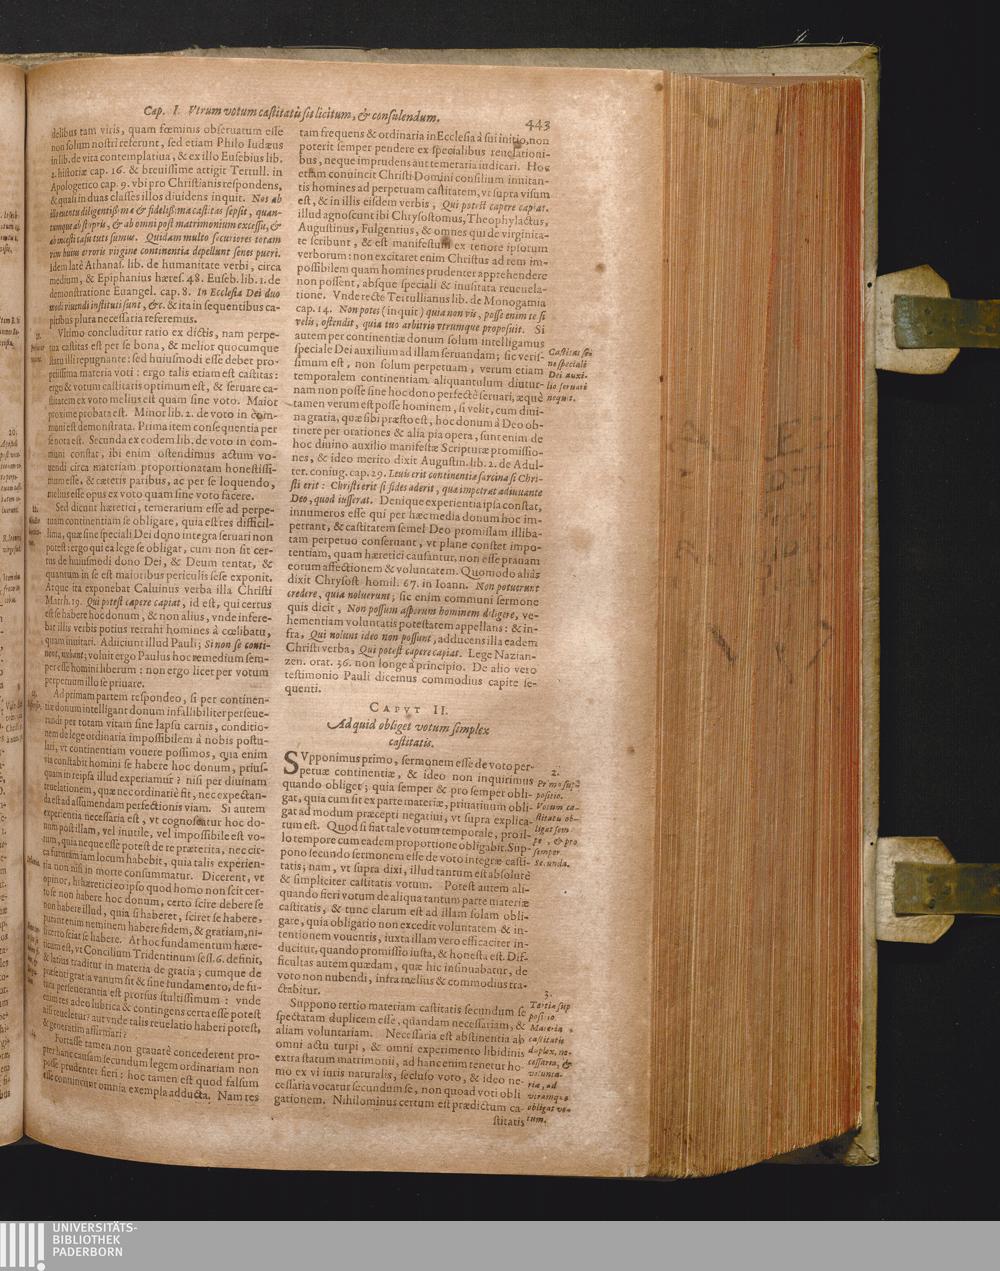 Cap. I. Vtrum votum castitatis sit licitum, & consulendum.
443
delibus tam viris, quam fœminis obseruatum esse
non solum nostri referunt, sed etiam Philo Iudæus
in lib. de vita contemplatiua, & ex illo Eusebius lib.
2. historiæ cap. 16. & breuissime attigit Tertull. in
Apologetico cap. 9. vbi pro Christianis respondens,
& quasi in duas classes illos diuidens inquit. Nos ab
illo euentu diligentiss:ma & fideliss:ma castitas sepsit, quan-
tumque ab stupris, & ab omni post matrimonium excessu, &
ab incesti casu tuti sumus. Quidam multo securiores totam
vim huius erroris virgine continentia depellunt senes pueri.
Idem late Athanas. lib. de humanitate verbi, circa
medium, & Epiphanius hæres. 48. Euseb. lib. 1. de
demonstratione Euangel. cap. 8. In Ecclesia Dei duo
modi viuendi instituti sunt, &c. & ita in sequentibus ca-
pitibus plura necessaria referemus.
Vltimo concluditur ratio ex dictis, nam perpe-
tua castitas est per se bona, & melior quocumque
statu illi repugnante: sed huiusmodi esse debet pro-
priissima materia voti: ergo talis etiam est castitas:
ergo & votum castitatis optimum est, & seruare ca-
stitatem ex voto melius est quam sine voto. Maior
proxime probata est. Minor lib. 2. de voto in com-
muni est demonstrata. Prima item consequentia per
se nota est. Secunda ex eodem lib. de voto in com-
muni constat, ibi enim ostendimus actum vo-
uendi circa materiam proportionatam honestissi-
mum esse, & cæteris paribus, ac per se loquendo,
melius esse opus ex voto quam sine voto facere.
Sed dicunt hæretici, temerarium esse ad perpe-
tuam continentiam se obligare, quia est res difficil-
lima, quæ sine speciali Dei dono integra seruari non
potest: ergo qui ea lege se obligat, cum non sit cer-
tus de huiusmodi dono Dei, & Deum tentat, &
quantum in se est maioribus periculis sese exponit.
Atque ita exponebat Caluinus verba illa Christi
Matth. 19. Qui potest capere capiat, id est, qui certus
est se habere hoc donum, & non alius, vnde infere-
bat illis verbis potius retrahi homines à cœlibatu,
quam inuitari. Adiiciunt illud Pauli; Si non se conti-
nent, nubant; voluit ergo Paulus hoc remedium sem-
per esse homini liberum: non ergo licet per votum
perpetuum illo se priuare.
Ad primam partem respondeo, si per continen-
tiæ donum intelligant donum infallibiliter perseue-
randi per totam vitam sine lapsu carnis, conditio-
nem de lege ordinaria impossibilem à nobis postu-
lari, vt continentiam vouere possimus, qua enim
via constabit homini se habere hoc donum, prius-
quam in reipsa illud experiamur? nisi per diuinam
reuelationem, quæ nec ordinariè fit, nec expectan-
da est ad assumendam perfectionis viam. Si autem
experientia necessaria est, vt cognoscatur hoc do-
num post illam, vel inutile, vel impossibile est vo-
tum, quia neque esse potest de re præterita, nec cir-
ca futuram iam locum habebit, quia talis experien-
tia non nisi in morte consummatur. Dicerent, vt
opinor, hi hæretici eo ipso quod homo non scit cer-
to se non habere hoc donum, certo scire debere se
non habere illud, quia si haberet, sciret se habere,
putant enim neminem habere fidem, & gratiam, ni-
si certo sciat se habere. At hoc fundamentum hære-
ticum est, vt Concilium Tridentinum sess. 6. definit,
& latius traditur in materia de gratia; cumque de
præsenti gratia vanum sit & sine fundamento, de fu-
tura perseuerantia est prorsus stultissimum: vnde
enim res adeo lubrica & contingens certa esse potest
nisi reueletur? aut vnde talis reuelatio haberi potest,
& generatim affirmari?
Fortasse tamen non grauatè concederent pro-
pter hanc causam secundum legem ordinariam non
posse prudenter fieri: hoc tamen est quod falsum
esse conuincunt omnia exempla adducta. Nam res
tam frequens & ordinaria in Ecclesia à sui initio, non
poterit semper pendere ex specialibus reuelationi-
bus, neque imprudens aut temeraria iudicari. Hoc
etiam conuincit Christi Domini consilium inuitan-
tis homines ad perpetuam castitatem, vt supra visum
est, & in illis eisdem verbis, Qui potest capere capiat.
illud agnoscunt ibi Chrysostomus, Theophylactus,
Augustinus, Fulgentius, & omnes qui de virginita-
te scribunt, & est manifestum ex tenore ipsorum
verborum: non excitaret enim Christus ad rem im-
possibilem quam homines prudenter apprehendere
non possent, absque speciali & inusitata reueuela-
tione. Vnde recte Tertullianus lib. de Monogamia
cap. 14. Non potes (inquit) quia non vis, posse enim te si
velis, ostendit, quia tuo arbitrio vtrumque proposuit. Si
autem per continentiæ donum solum intelligamus
speciale Dei auxilium ad illam seruandam; sic veris-
simum est, non solum perpetuam, verum etiam
temporalem continentiam aliquantulum diutur-
nam non posse sine hoc dono perfectè seruari, æquè
tamen verum est posse hominem, si velit, cum diui-
na gratia, quæ sibi præsto est, hoc donum à Deo ob-
tinere per orationes & alia pia opera, sunt enim de
hoc diuino auxilio manifestæ Scripturæ promissio-
nes, & ideo merito dixit Augustin. lib. 2. de Adul-
ter. coniug. cap. 29. Leuis erit continentiæ sarcina si Chri-
sti erit: Christi erit si fides aderit, quæ impetrat adiuuante
Deo, quod iusserat. Denique experientia ipsa constat,
innumeros esse qui per hæc media donum hoc im-
petrant, & castitatem semel Deo promissam illiba-
tam perpetuo conseruant, vt plane constet impo-
tentiam, quam hæretici causantur, non esse prauam
eorum affectionem & voluntatem. Quomodo aliàs
dixit Chrysost homil. 67. in Ioann. Non potuerunt
credere, quia noluerunt; sic enim communi sermone
quis dicit, Non possum asperum hominem diligere, ve-
hementiam voluntatis potestatem appellans: & in-
fra, Qui nolunt ideo non possunt, adducens illa eadem
Christi verba, Qui potest capere capiat. Lege Nazian-
zen. orat. 36. non longe à principio. De alio vero
testimonio Pauli dicemus commodius capite se-
quenti.
CAPVT II.
Ad quid obliget votum simplex
castitatis.
SVpponimus primo, sermonem esse de voto per-
petuæ continentiæ, & ideo non inquirimus
quando obliget; quia semper & pro semper obli-
gat, quia cum sit ex parte materiæ, priuatiuum obli-
gat ad modum præcepti negatiui, vt supra explica-
tum est. Quod si fiat tale votum temporale, pro il-
lo tempore cum eadem proportione obligabit. Sup-
pono secundo sermonem esse de voto integræ casti-
tatis; nam, vt supra dixi, illud tantum est absolutè
& simpliciter castitatis votum. Potest autem ali-
quando fieri votum de aliqua tantum parte materiæ
castitatis, & tunc clarum est ad illam solam obli-
gare, quia obligatio non excedit voluntatem & in-
tentionem vouentis, iuxta illam vero efficaciter in-
ducitur, quando promissio iusta, & honesta est. Dif-
ficultas autem quædam, quæ hic insinuabatur, de
voto non nubendi, infra melius & commodius tra-
ctabitur.
Suppono tertio materiam castitatis secundum se
spectatam duplicem esse, quandam necessariam, &
aliam voluntariam. Necessaria est abstinentia ab
omni actu turpi, & omni experimento libidinis
extra statum matrimonii, ad hanc enim tenetur ho-
mo ex vi iuris naturalis, secluso voto, & ideo ne-
cessaria vocatur secundum se, non quoad voti obli-
gationem. Nihilominus certum est prædictum ca-
stitatis
Castitas si-
ne speciali
Dei auxi-
lio seruari
nequit.
2.
Primo sup-
positio.
Votum ca-
stitatis ob-
ligat sem-
per, & pro
semper
Secunda.
3.
Tertia sup
positio
Materia
castitatis
duplex, ne-
cessaria, &
volunta-
ria, ad
vtramque
obligat vo-
tum.
UNIVERSITÄTS-
BIBLIOTHEK
PADERBORN